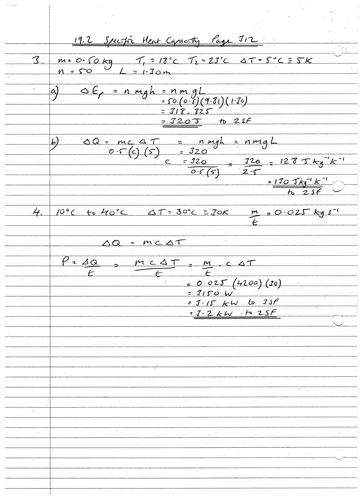 19.2 Specific Heat Capacity Page 312
3. m = 0.50kg T₁ = 18°C T₂ = 23°C ΔT = 5°C ≡ 5K
n = 50 L = 1.30m
a) ΔEₚ = nmgh = nmgL
= 50(0.5)(9.81)(1.30)
= 318.825
= 320J to 2SF
b) ΔQ = mcΔT = nmgh = nmgL
0.5(c)(5) = 320
c = 320/0.5(5) = 320/2.5 = 128 J kg⁻¹ K⁻¹
= 130 J kg⁻¹ K⁻¹
to 2SF
4. 10°C to 40°C ΔT = 30°C ≡ 30K m/t = 0.025 kg s⁻¹
ΔQ = mcΔT
P = ΔQ/t = mcΔT/t = m/t . c ΔT
= 0.025 (4200)(30)
= 3150 W
= 3.15 kW to 3SF
= 3.2 kW to 2SF